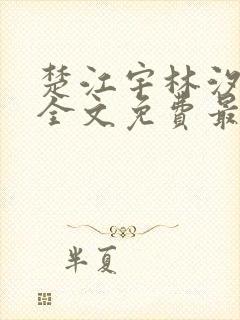 楚江宇林汐
全文免费最
半夏